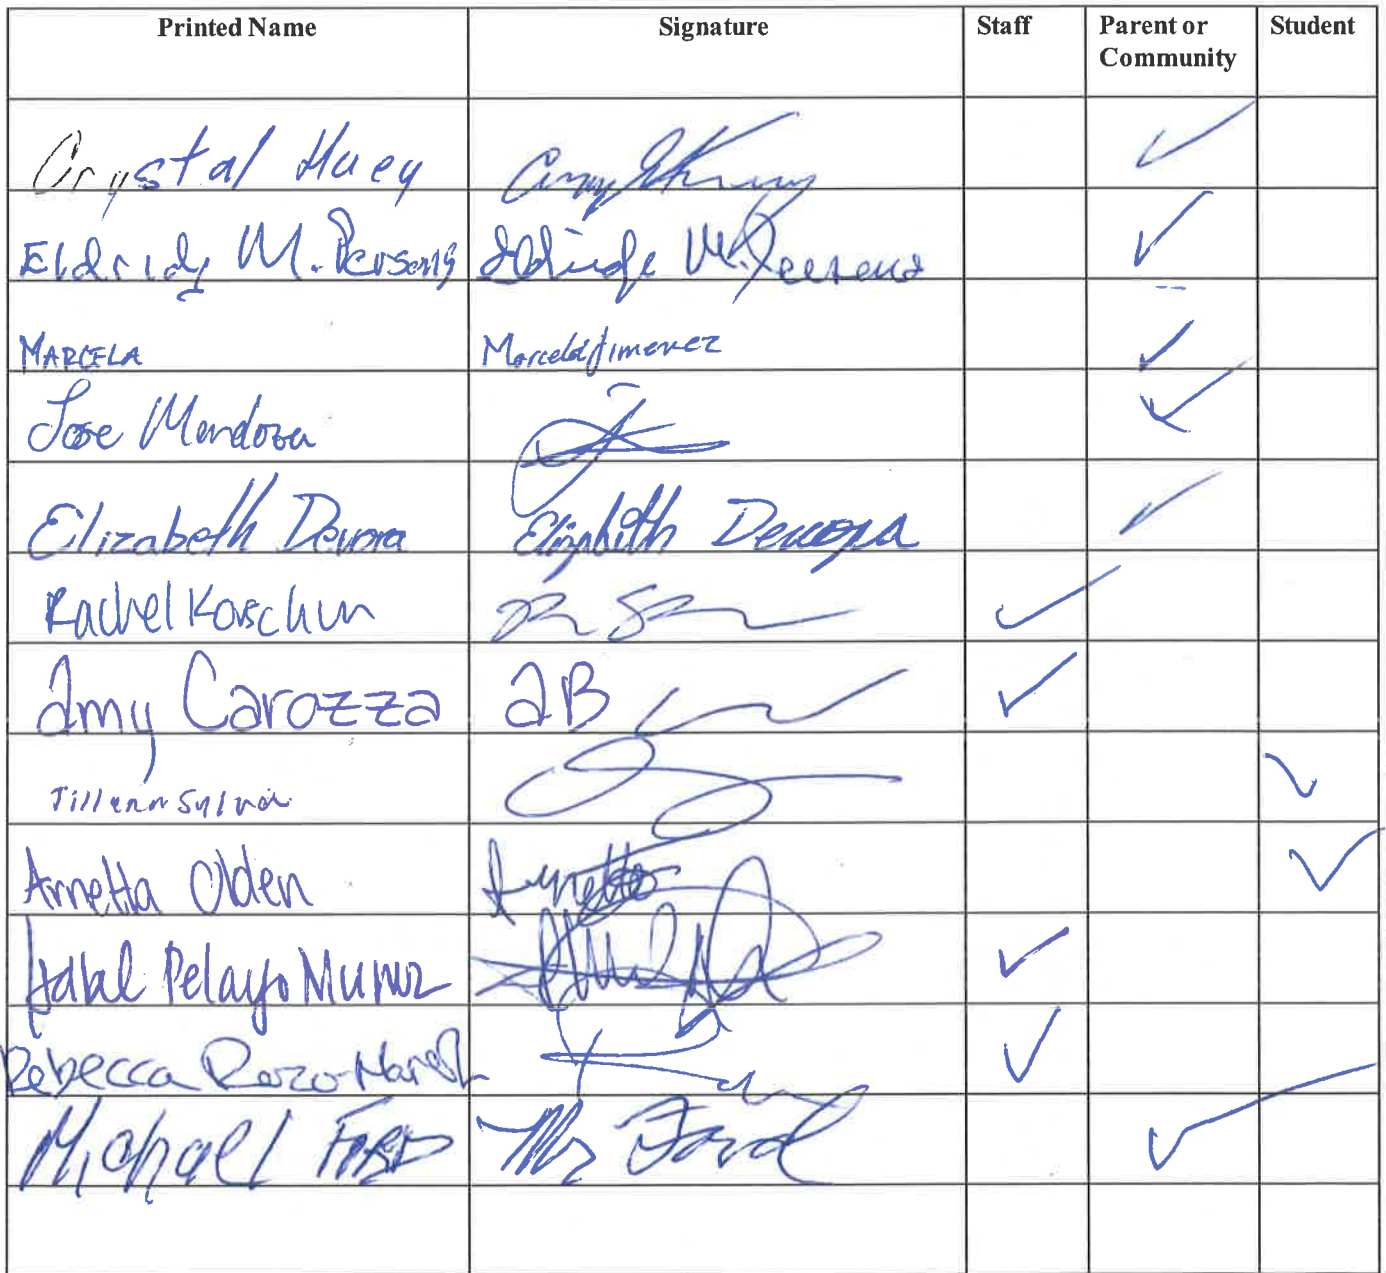 Printed Name Signature Staff Parent or Community Student
Crystal Huey ✓
Eldridg M. Persons Eldridge M. Persons ✓
MARCELA Marcela Jimenez ✓
Jose Mendoza ✓
Elizabeth Devora Elizabeth Devora ✓
Rachel Korschun ✓
Amy Carozza aB ✓
Jillann Sylva ✓
Arnetta Olden Arnetta ✓
Pelayo Munoz ✓
Rebecca ✓
Michael FORD Mr Ford ✓